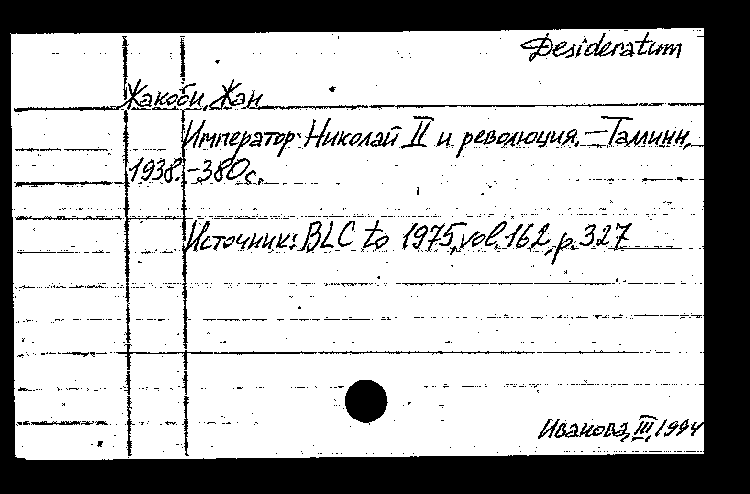 Desideratum
Жакоби, Жан
Император Николай II и революция. – Таллинн,
1938. – 380 с.
Источник: BLC to 1975, vol. 162, p. 327
Иванова, III, 1994